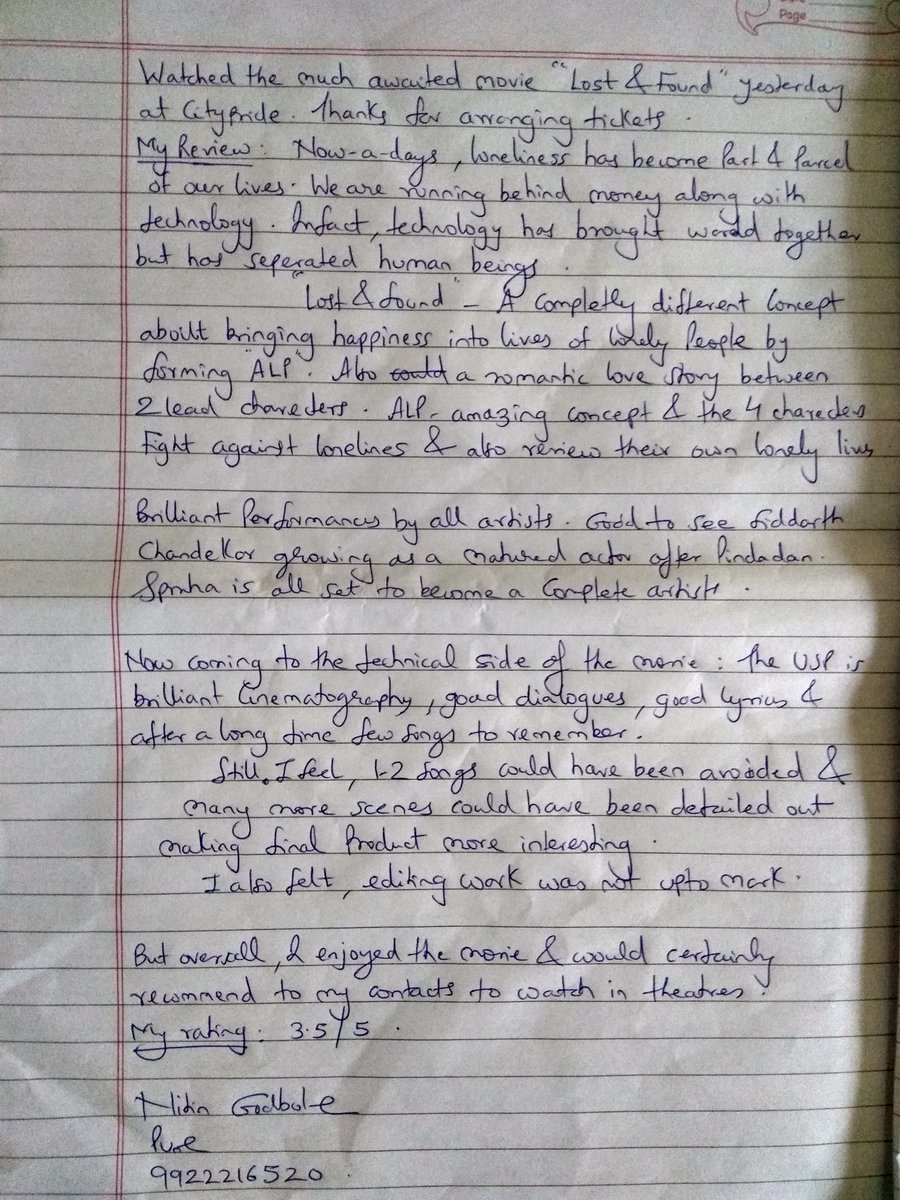 Page
Watched the much awaited movie "Lost & Found" yesterday
at CityPride. Thanks for arranging tickets.
My Review: Now-a-days, loneliness has become Part & Parcel
of our lives. We are running behind money along with
technology. Infact, technology has brought world together
but has seperated human beings.
"Lost & found" - A completly different Concept
about bringing happiness into lives of lonely People by
forming "ALP". Also could a romantic love story between
2 lead charecters. ALP - amazing concept & the 4 charecters
Fight against lonelines & also review their own lonely lives
Brilliant Performances by all artists. Good to see Siddarth
Chandekar growing as a matured actor after Pindadan.
Spruha is all set to become a Complete artist.
Now coming to the technical side of the movie: the USP is
brilliant Cinematography, good dialogues, good lyrics &
after a long time few songs to remember.
Still I feel, 1-2 songs could have been avoided &
many more scenes could have been detailed out
making final Product more interesting.
I also felt, editing work was not upto mark.
But overall, I enjoyed the movie & would certainly
recommend to my contacts to watch in theatres.
My rating: 3.5/5.
Nitin Godbole
Pune
9922216520.